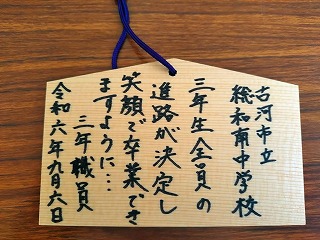 古河市立
総和南中学校
三年生全員の
進路が決定し
笑顔で卒業でき
ますように…
三年職員
令和六年九月六日